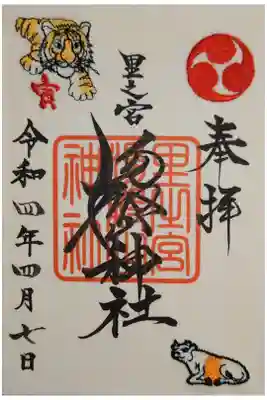 奉拝
里之宮
湯殿山神社
里之宮
神社
令和四年四月七日
寅